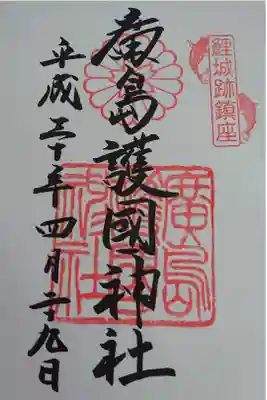 鯉城跡鎮座
廣島護國神社
平成三十年四月二十九日
廣島護國神社